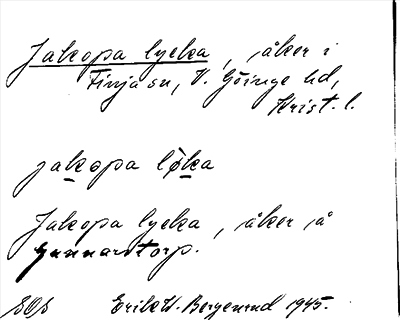 Jakopa lycka, åker i
Finja sn, V. Göinge hd,
Krist. l.
jakopa løka
Jakopa lycka, åker å
Gunnarstorp.
Erik W. Bergenrud 1945.